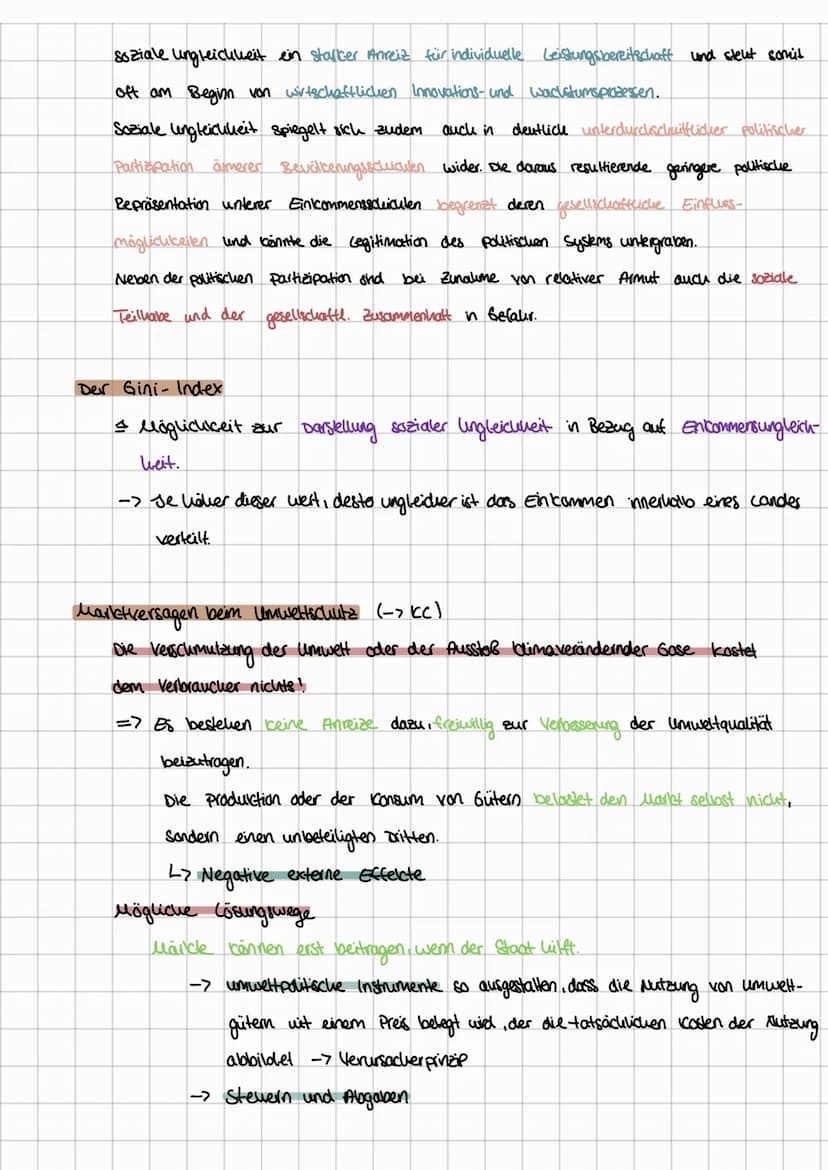 soziale Ungleichheit ein starker Anreiz für individuelle Leistungsbereitschaft und steht somit
oft am Beginn von wirtschaftlichen Innovations- und Wachstumsprozessen.
Soziale Ungleichheit spiegelt sich zudem auch in deutlich unterdurchschnittlicher politischer
Partizipation ärmerer Bevölkerungsschichten wider. Die daraus resultierende geringere politische
Repräsentation unterer Einkommensschichten begrenzt deren gesellschaftliche Einfluss-
möglichkeiten und könnte die Legitimation des politischen Systems untergraben.
Neben der politischen Partizipation sind bei Zunahme von relativer Armut auch die soziale
Teilhabe und der gesellschaftl. Zusammenhalt in Gefahr.
Der Gini-Index
Möglichkeit zur Darstellung sozialer Ungleichheit in Bezug auf Einkommensungleich-
heit.
-> Je höher dieser Wert, desto ungleicher ist das Einkommen innerhalb eines Landes
verteilt.
Marktversagen beim Umweltschutz (-> KC)
Die Verschmutzung der Umwelt oder der Ausstoß klimaverändernder Gase kostet
dem Verbraucher nichts!
=> Es bestehen keine Anreize dazu, freiwillig zur Verbesserung der Umweltqualität
beizutragen.
Die Produktion oder der Konsum von Gütern belastet den Markt selbst nicht,
sondern einen unbeteiligten Dritten.
↳ Negative externe Effekte
Mögliche Lösungswege
Märkte können erst beitragen, wenn der Staat hilft.
-> umweltpolitische Instrumente so ausgestalten, dass die Nutzung von Umwelt-
gütern mit einem Preis belegt wird, der die tatsächlichen Kosten der Nutzung
abbildet -> Verursacherprinzip
-> Steuern und Abgaben